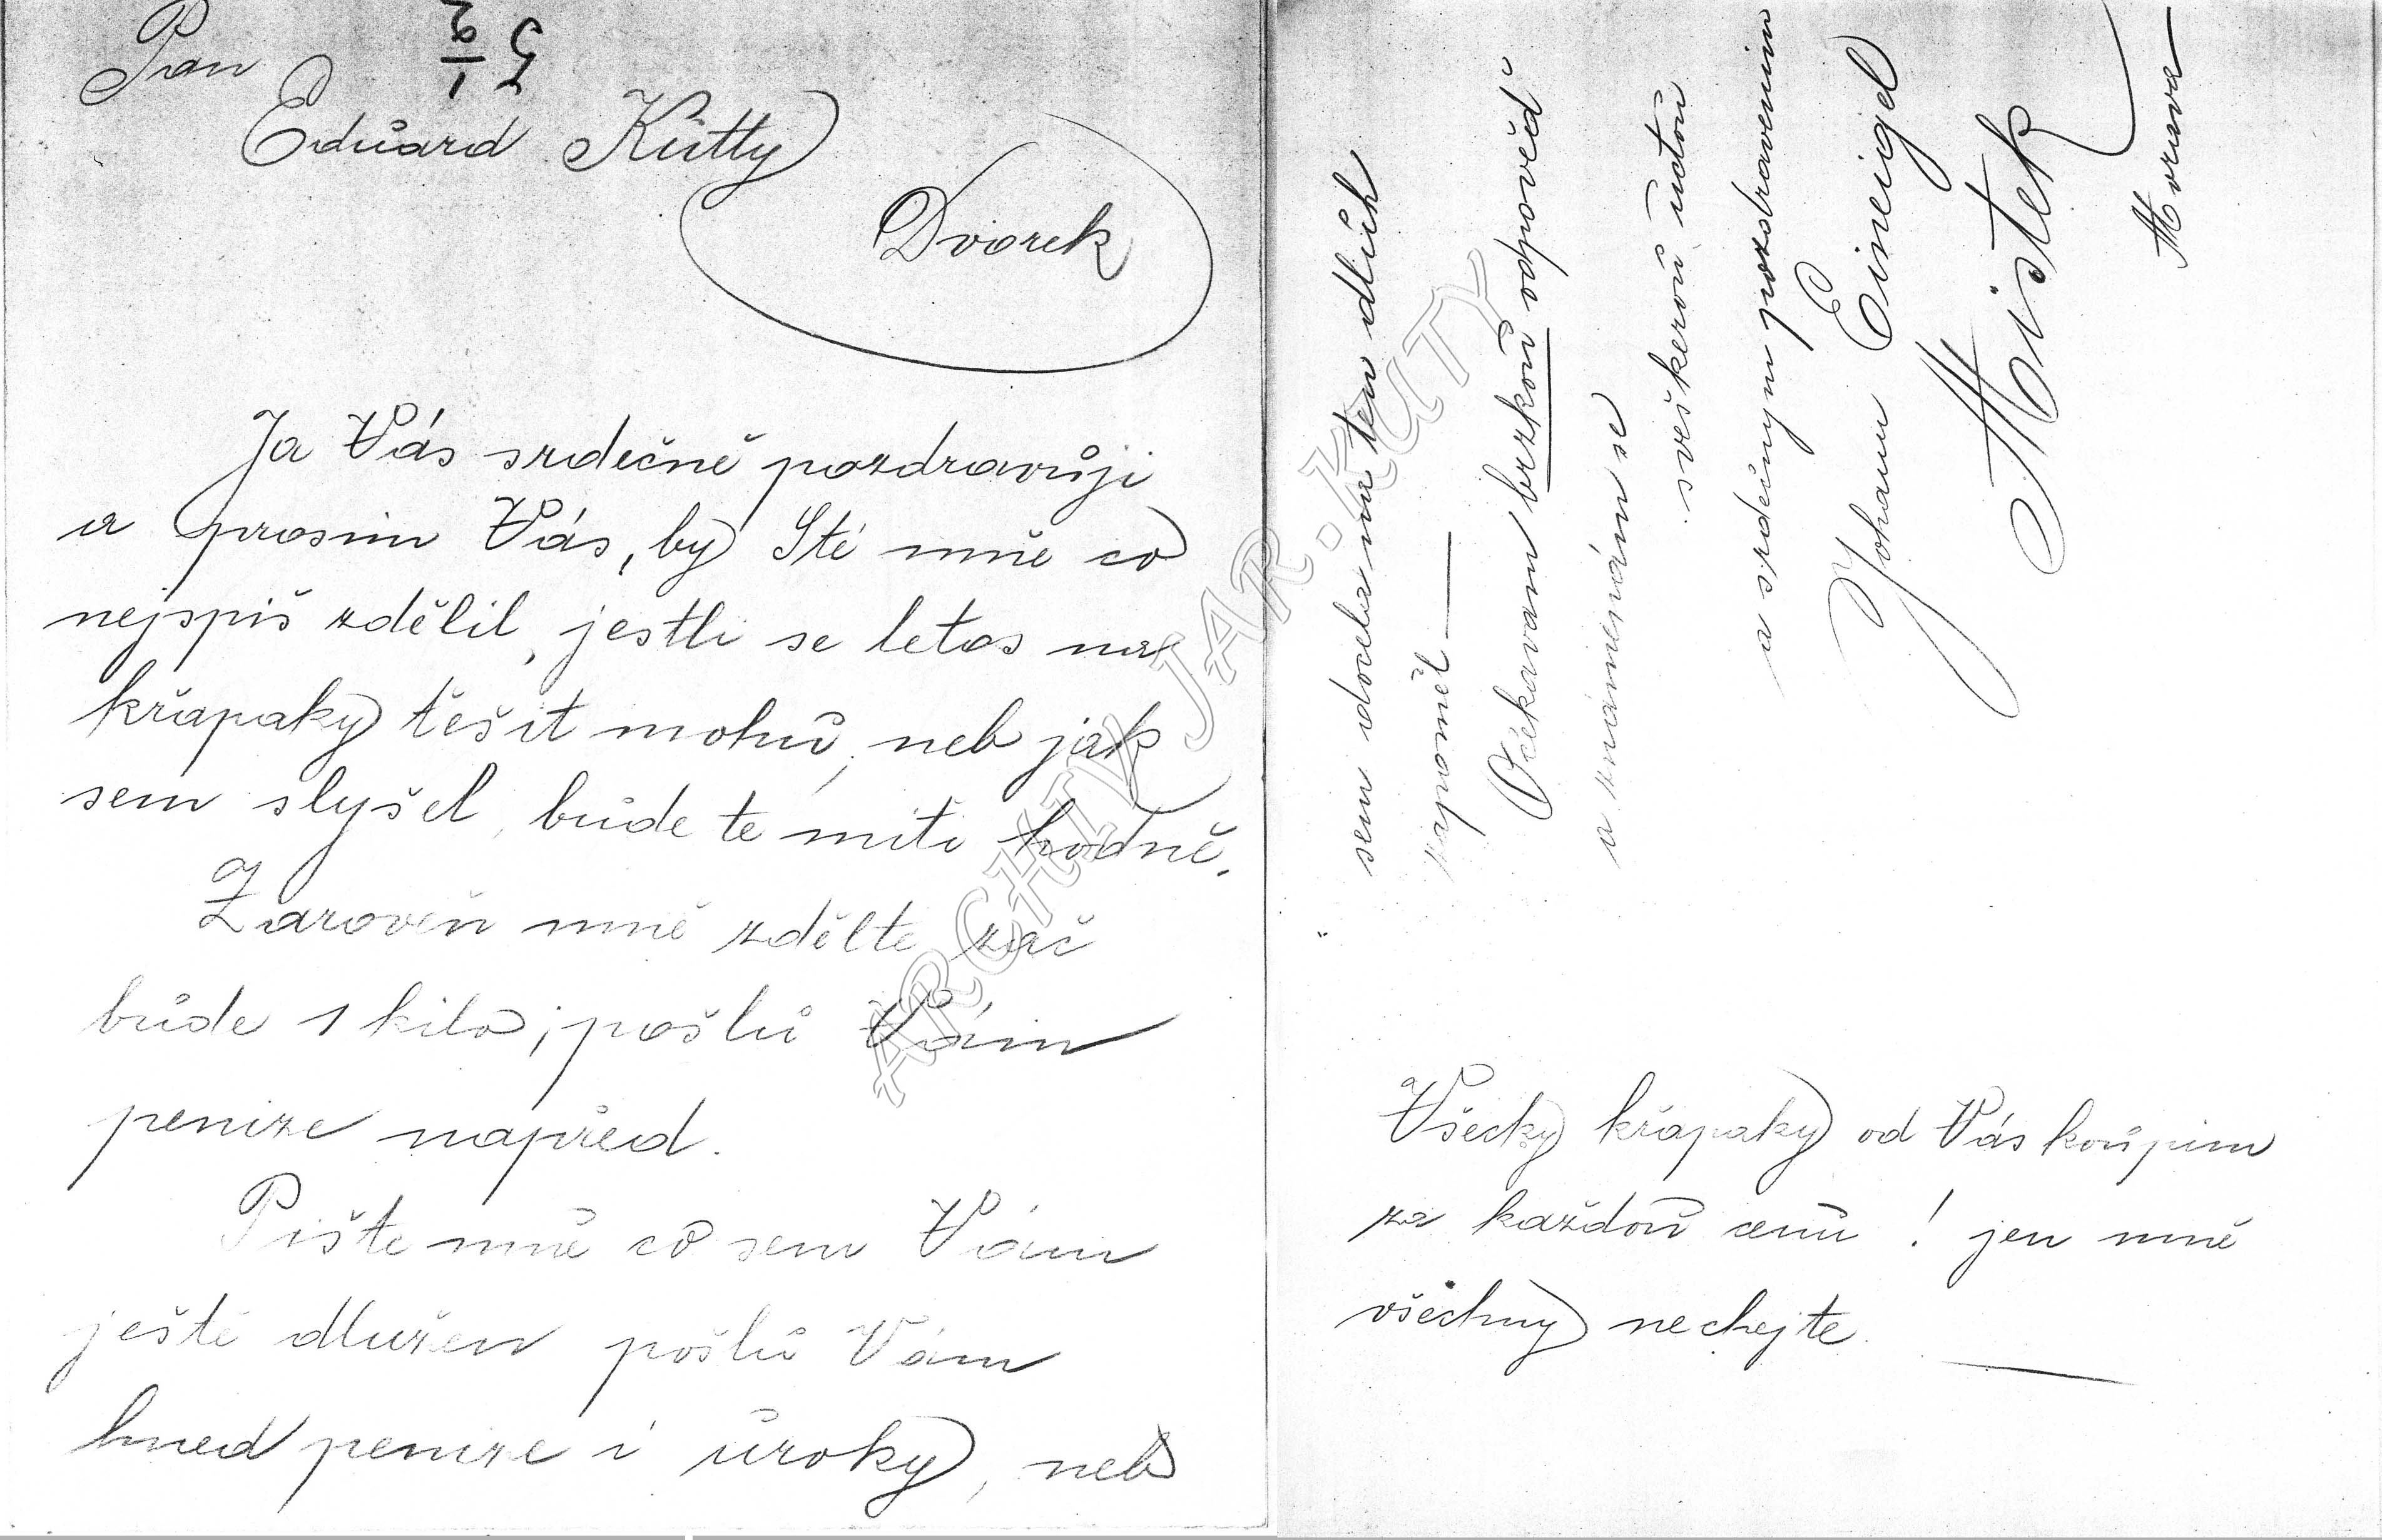 Pan
Eduard Kutty
Dvorek
Ja Vás srdečně pozdravuji
a prosim Vás, by Sté mně co
nejspiš zdělil, jestli se letos na
křapaky těšit mohu, neb jak
sem slyšel, bude te miti hodně.
Zaroveň mně zdělte zač
bude 1 kilo; pošlu Vám
penize napřed.
Pište mně co sem Vám
ještě dlužen pošlu Vám
hned penize i uroky, neb
sem docela na ten dluh
zapoměl —
Očékavam brzkou odpověď
a znamenám se
sveškerou uctou
a srdečnym pozdravenim
Johann Eineigel
Mistek
Morava
Všecky křapaky od Vás koupim
za každou cenu! jen mně
všechny nechejte.
ARCHIV JAR. KUTY